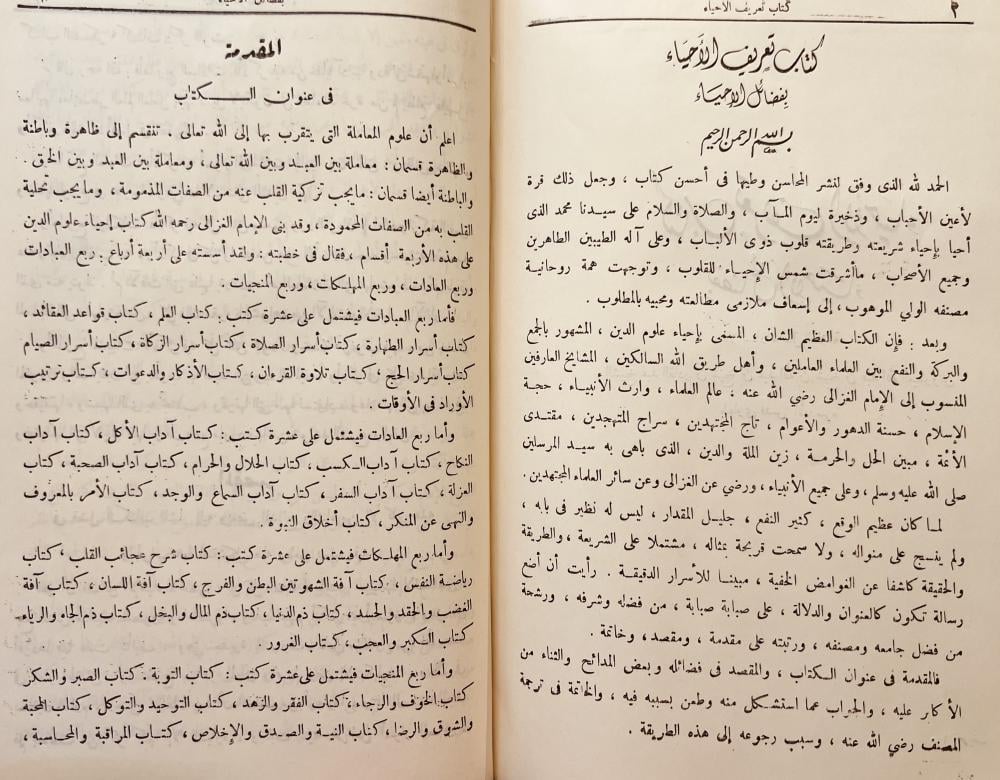 ٣
كتاب تعريف الأحياء
كتاب تعريف الأحياء
بفضائل الإحياء
بسم الله الرحمن الرحيم
الحمد لله الذى وفق لنشر المحاسن وطيها فى أحسن كتاب ، وجعل ذلك قرة
لأعين الأحباب ، وذخيرة ليوم المــآب ، والصلاة والسلام على سيدنا محمد الذى
أحيا بإحياء شريعته وطريقته قلوب ذوى الألباب ، وعلى آله الطيبين الطاهرين
وجميع الأصحاب ، ماأشرقت شمس الإحيـاء للقلوب ، وتوجهت همة روحانية
مصنفه الولي الموهوب ، إلى إسعاف ملازمى مطالعته ومحبيه بالمطلوب .
وبعد : فإن الكتاب العظيم الشان ، المسمى بإحياء علوم الدين ، المشهور بالجمع
والبركة والنفع بين العلماء العاملين ، وأهل طريق الله السالكين ، المشايخ العارفين
المنسوب إلى الإمام الغزالى رضي الله عنه ، عالم العلماء ، وارث الأنبيـاء ، حجـة
الإسلام ، حسنة الدهور والأعوام ، تاج المجتهدين ، سراج المتهجدين ، مقتـدى
الأئمة ، مبين الحل والحرمـة ، زين الملة والدين ، الذى باهى به سيـد المرسلين
صلى الله عليه وسلم ، وعلى جميع الأنبيـاء ، ورضي عن الغزالى وعن سائر العلماء المجتهدين .
لمـا كان عظيم الوقع ، كثير النفع ، جليـل المقدار ، ليس له نظير فى بابه ،
ولم ينسـج على منواله ، ولا سمحت قريحة بمثاله ، مشتملا على الشريعة ، والطريقة
والحقيقة كاشفا عن الغوامض الخفية ، مبينـا للأسرار الدقيقـة . رأيت أن أضع
رسالة تكون كالعنوان والدلالة ، على صبابة صبابة ، من فضله وشرفه ، ورشحة
من فضل جامعه ومصنفه ، ورتبته على مقدمة ، ومقصد ، وخاتمة .
فالمقدمة فى عنوان الـكتاب ، والمقصد فى فضائله وبعض المدائح والثناء من
الأكابر عليه ، والجواب عما استشـكل منه وطعن بسببه فيه ، والخاتمة فى ترجمة
المصنف رضي الله عنه ، وسبب رجوعه إلى هذه الطريقة .
بفضائل الأحياء
المقدمة
فى عنوان الـــكتاب
اعلم أن علوم المعاملة التى يتقرب بها إلى الله تعالى ، تنقسم إلى ظاهرة وباطنة
والظاهرة قسمان : معاملة بين العبـد وبين الله تعالى ، ومعاملة بين العبد وبين الخلق .
والباطنة أيضا قسمان : مايجب تزكية القلب عنه من الصفات المذمومة ، ومايجب تحلية
القلب به من الصفات المحمودة ، وقد بنى الإمام الغزالى رحمه الله كتاب إحياء علوم الدين
على هذه الأربعـة أقسام ، فقال فى خطبته : ولقد أسسته على أربعة أرباع . ربع العبادات
وربع العادات ، وربع المهلـكات ، وربع المنجيات .
فأما ربع العبادات فيشتمل على عشرة كتب . كتاب العلم ، كتاب قواعد العقائد ،
كتاب أسرار الطهارة ، كتاب أسرار الصلاة ، كتاب أسرار الزكاة ، كتاب أسرار الصيام
كتاب أسرار الحج ، كـتاب تلاوة القرءان ، كـتاب الأذكار والدعوات ، كـتاب ترتيب
الأوراد فى الأوقات .
وأما ربع العادات فيشتمل على عشرة كـتب : كـتاب آداب الأكل ، كتاب آداب
النكاح ، كتاب آداب الـكسب ، كتاب الحلال والحرام ، كتاب آداب الصحبة ، كتاب
العزلة ، كتاب آداب السفر ، كتاب آداب السماع والوجد ، كتاب الأمر بالمعروف
والنهى عن المنكر ، كتاب أخلاق النبوة .
وأما ربع المهلـكات فيشتمل على عشرة كـتب : كتاب شرح عجائب القلب ، كتاب
رياضة النفس ، كتاب آفة الشهوتين البطن والفرج ، كتاب آفة اللسان ، كتاب آفة
الغضب والحقد والحسد ، كتاب ذم الدنيا ، كتاب ذم المال والبخل ، كتاب ذم الجاه والرياء
كتاب الـكبر والعجب ، كـتاب الغرور .
وأما ربع المنجيات فيشتمل على عشرة كتب : كتاب التوبة . كتاب الصبر والشكر
كتاب الخوف والرجاء ، كتاب الفقر والزهد ، كتاب التوحيد والتوكل ، كتاب المحبة
والشوق والرضا ، كتاب النية والصـدق والإخلاص ، كتـاب المراقبة والمحاسبة ،